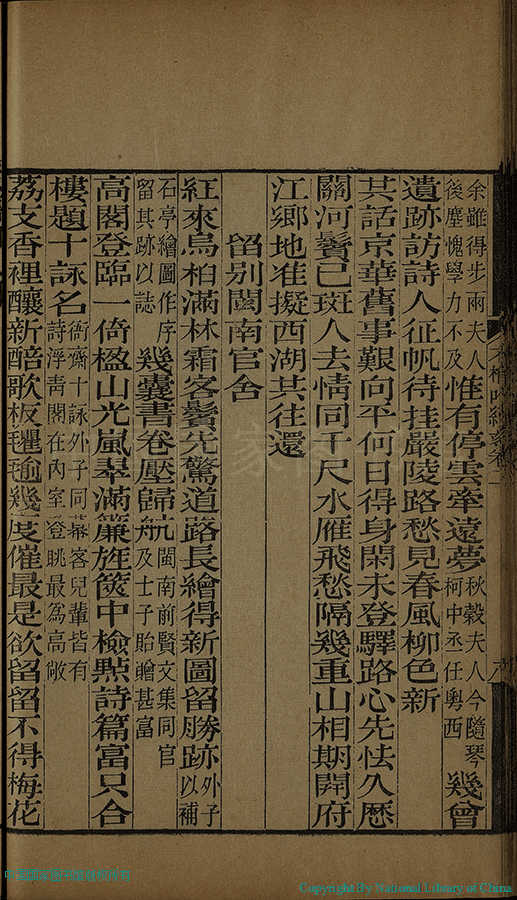 余雖得步兩夫人後塵愧學力不及惟有停雲牽遠夢秋縠夫人今隨琴柯中丞任粵西幾曾
遺跡訪詩人征帆待挂嚴陵路愁見春風柳色新
共話京華舊事艱向平何日得身閑未登驛路心先怯久歷
關河鬢已斑人去情同千尺水雁飛愁隔幾重山相期開府
江鄉地准擬西湖共往還
留別閩南官舍
紅來烏桕滿林霜客鬢先驚道路長繪得新圖留勝跡外子以補
石亭繪圖作序留其跡以誌幾囊書卷壓歸航閩南前賢文集同官及士子貽贈甚富
高閣登臨一倚楹山光嵐翠滿簾旌篋中檢點詩篇富只合
樓題十詠名衙齋十詠外子同幕客兒輩皆有詩浮青閣在內室登眺最為高敞
荔支香裡釀新醅歌板幾度催最是欲留留不得梅花
Copyright By National Library of China